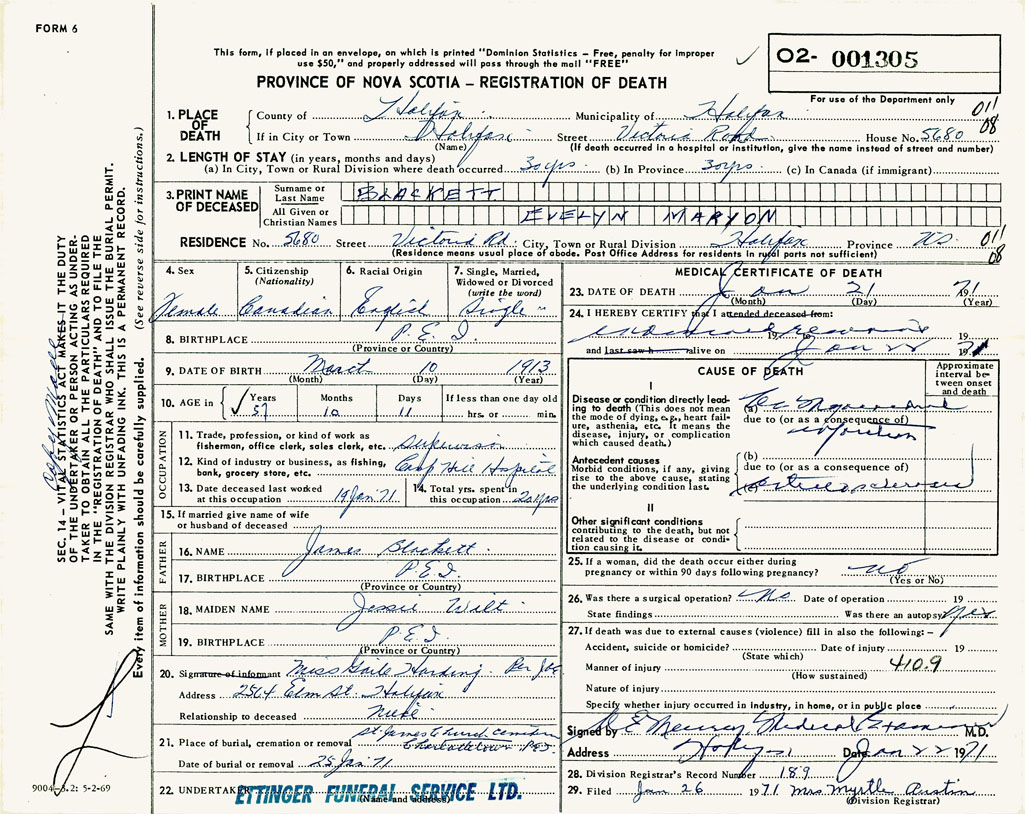 FORM 6
This form, if placed in an envelope, on which is printed "Dominion Statistics – Free, penalty for improper
use $50," and properly addressed will pass through the mail "FREE"
PROVINCE OF NOVA SCOTIA – REGISTRATION OF DEATH
O2- 001305
For use of the Department only
011
08
1. PLACE OF DEATH
County of Halifax Municipality of Halifax
If in City or Town Halifax Street Victoria Road House No. 5680
(Name) (If death occurred in a hospital or institution, give the name instead of street and number)
2. LENGTH OF STAY (in years, months and days)
(a) In City, Town or Rural Division where death occurred 30 yrs. (b) In Province 30 yrs. (c) In Canada (if immigrant)
3. PRINT NAME OF DECEASED
Surname or Last Name BLACKETT
All Given or Christian Names EVELYN MARYON
RESIDENCE No. 5680 Street Victoria Rd. City, Town or Rural Division Halifax Province N.S. 011
08
(Residence means usual place of abode. Post Office Address for residents in rural parts not sufficient)
4. Sex Female
5. Citizenship (Nationality) Canadian
6. Racial Origin English
7. Single, Married, Widowed or Divorced (write the word) Single
8. BIRTHPLACE P.E.I.
(Province or Country)
9. DATE OF BIRTH March 10 1913
(Month) (Day) (Year)
10. AGE in Years 57 Months 10 Days 11 If less than one day old
hrs. or min.
OCCUPATION
11. Trade, profession, or kind of work as
fishermen, office clerk, sales clerk, etc. Supervisor
12. Kind of industry or business, as fishing,
bank, grocery store, etc. Camp Hill Hospital
13. Date deceased last worked
at this occupation 19 Jan 71
14. Total yrs. spent in
this occupation 20 yrs
15. If married give name of wife
or husband of deceased
FATHER
16. NAME James Blackett
17. BIRTHPLACE P.E.I.
(Province or Country)
MOTHER
18. MAIDEN NAME Jessie
19. BIRTHPLACE P.E.I.
(Province or Country)
20. Signature of informant Miss Gaile Harding Per
Address 2564 Elm St. Halifax
Relationship to deceased Niece
21. Place of burial, cremation or removal St James Church Cemetery
Charlottetown P.E.I.
Date of burial or removal 25 Jan 71
22. UNDERTAKER ETTINGER FUNERAL SERVICE LTD.
(Name and address)
MEDICAL CERTIFICATE OF DEATH
23. DATE OF DEATH Jan 21 1971
(Month) (Day) (Year)
24. I HEREBY CERTIFY that I attended deceased from:
examined remains 19
and last saw h alive on Jan 22 1971
CAUSE OF DEATH
Approximate interval between onset and death
I
Disease or condition directly leading to death (This does not mean the mode of dying, e.g., heart failure, asthenia, etc. It means the disease, injury, or complication which caused death.)
(a)
due to (or as a consequence of)
infarction
Antecedent causes
Morbid conditions, if any, giving rise to the above cause, stating the underlying condition last.
(b)
due to (or as a consequence of)
(c) arteriosclerosis
II
Other significant conditions
contributing to the death, but not related to the disease or condition causing it.
25. If a woman, did the death occur either during
pregnancy or within 90 days following pregnancy? no
(Yes or No)
26. Was there a surgical operation? No Date of operation 19
State findings Was there an autopsy yes
27. If death was due to external causes (violence) fill in also the following: –
Accident, suicide or homicide? Date of injury 19
(State which)
Manner of injury 410.9
(How sustained)
Nature of injury
Specify whether injury occurred in industry, in home, or in public place
Signed by Medical Examiner M.D.
Address Date Jan 22 1971
28. Division Registrar's Record Number 189
29. Filed Jan 26 1971 Mrs Myrtle Austin
(Division Registrar)
SEC. 14 – VITAL STATISTICS ACT MAKES IT THE DUTY
OF THE UNDERTAKER OR PERSON ACTING AS UNDER-
TAKER TO OBTAIN ALL THE PARTICULARS REQUIRED
IN THE "REGISTRATION OF DEATH" AND TO FILE THE
SAME WITH THE DIVISION REGISTRAR WHO SHALL ISSUE THE BURIAL PERMIT.
WRITE PLAINLY WITH UNFADING INK. THIS IS A PERMANENT RECORD.
Every item of information should be carefully supplied. (See reverse side for instructions.)